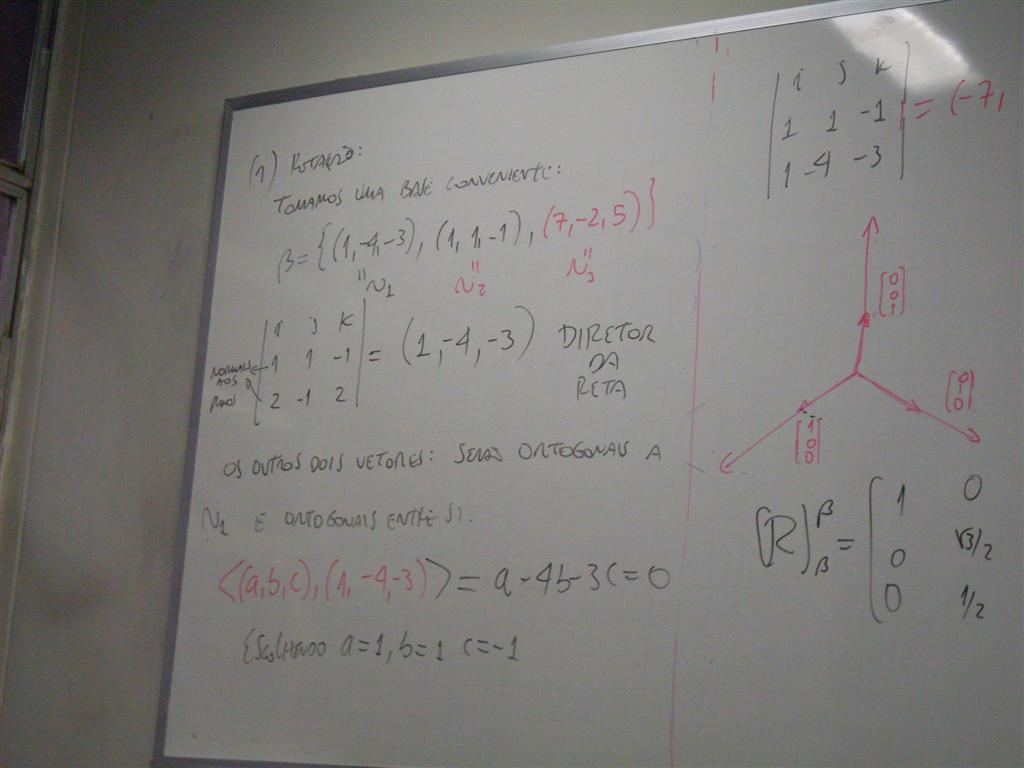 (1) ROTAÇÃO:
TOMAMOS UMA BASE CONVENIENTE:
β = {(1,-4,-3), (1,1,-1), (7,-2,5)}
" N1 " N2 " N3
| i j k |
NORMAIS AOS PLANOS | 1 1 -1 | = (1,-4,-3) DIRETOR DA RETA
| 2 -1 2 |
OS OUTROS DOIS VETORES: SERÃO ORTOGONAIS A
N1 E ORTOGONAIS ENTRE SI.
<(a,b,c),(1,-4,-3)> = a-4b-3c=0
ESCOLHENDO a=1, b=1 c=-1
| i j k |
| 1 1 -1 | = (-7,
| 1 -4 -3 |
[0 0 1]
[1 0 0]
[0 1 0]
[R]β β = [ 1 0
0 √3/2
0 1/2